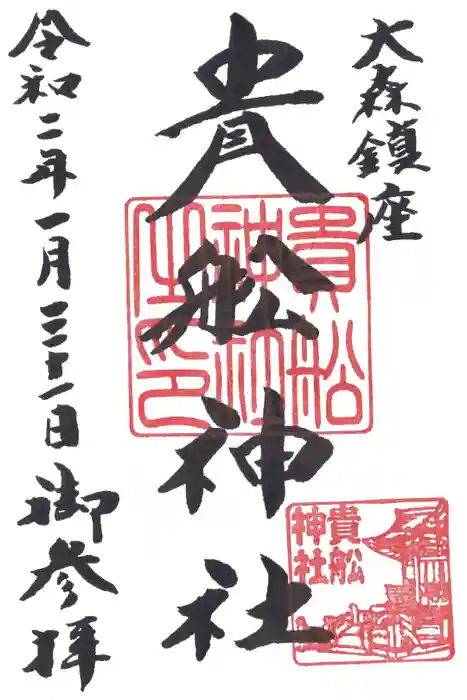 大森鎮座
貴舩神社
令和二年一月三十一日御参拝
貴舩
神社
之印
貴舩
神社